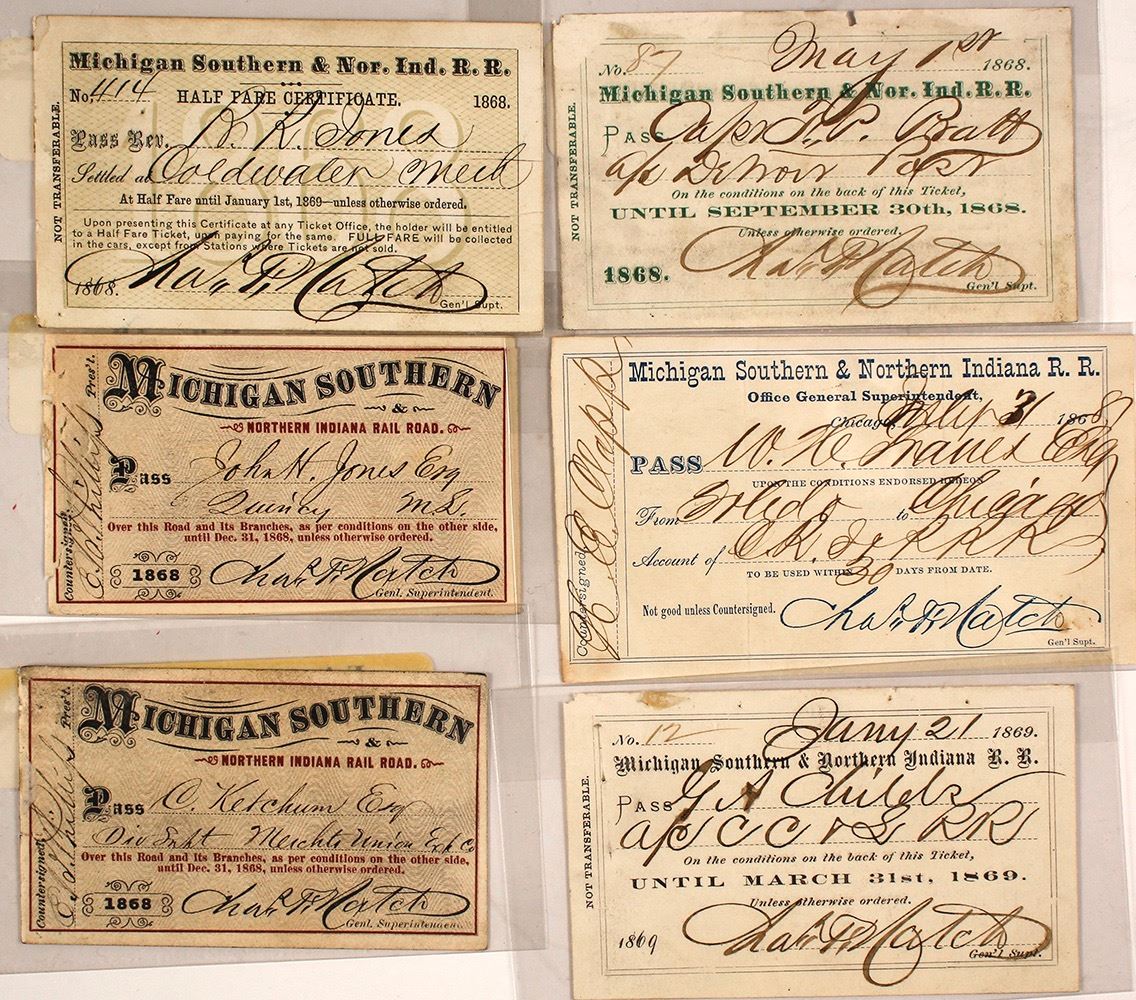 Michigan Southern & Nor. Ind. R. R.
No. 414 HALF FARE CERTIFICATE. 1868.
Pass Rev. R. K. Jones
Settled at Coldwater Mich
At Half Fare until January 1st, 1869—unless otherwise ordered.
Upon presenting this Certificate at any Ticket Office, the holder will be entitled
to a Half Fare Ticket, upon paying for the same. FULL FARE will be collected
in the cars, except from Stations where Tickets are not sold.
1868. Chas. F. Hatch
Gen'l Supt.
NOT TRANSFERABLE.
No. 87 May 1st 1868.
Michigan Southern & Nor. Ind. R. R.
PASS Capt. P. Pratt
a/c Detroit Post
On the conditions on the back of this Ticket,
UNTIL SEPTEMBER 30th, 1868.
Unless otherwise ordered.
1868. Chas. F. Hatch
Gen'l Supt.
NOT TRANSFERABLE.
MICHIGAN SOUTHERN
&
NORTHERN INDIANA RAIL ROAD.
Pass John H. Jones Esq
Quincy
Over this Road and Its Branches, as per conditions on the other side,
until Dec. 31, 1868, unless otherwise ordered.
1868 Chas. F. Hatch
Genl. Superintendent.
Countersigned, Phillips Pres't.
Michigan Southern & Northern Indiana R. R.
Office General Superintendent,
Chicago, July 31 1868
PASS W. H. Esq
UPON THE CONDITIONS ENDORSED HEREON
From Toledo to Chicago
Account of R R
TO BE USED WITHIN 30 DAYS FROM DATE.
Not good unless Countersigned. Chas. F. Hatch
Gen'l Supt.
Countersigned, H E Clapp
MICHIGAN SOUTHERN
&
NORTHERN INDIANA RAIL ROAD.
Pass C. Ketchum Esq
Div Supt Merchts Union Exp Co
Over this Road and Its Branches, as per conditions on the other side,
until Dec. 31, 1868, unless otherwise ordered.
1868 Chas. F. Hatch
Genl. Superintendent
Countersigned, Phillips Pres't.
No. 12 Jany 21 1869.
Michigan Southern & Northern Indiana R. R.
PASS G A Childs
a/c C C & RR
On the conditions on the back of this Ticket,
UNTIL MARCH 31st, 1869.
Unless otherwise ordered.
1869 Chas. F. Hatch
Gen'l Supt.
NOT TRANSFERABLE.